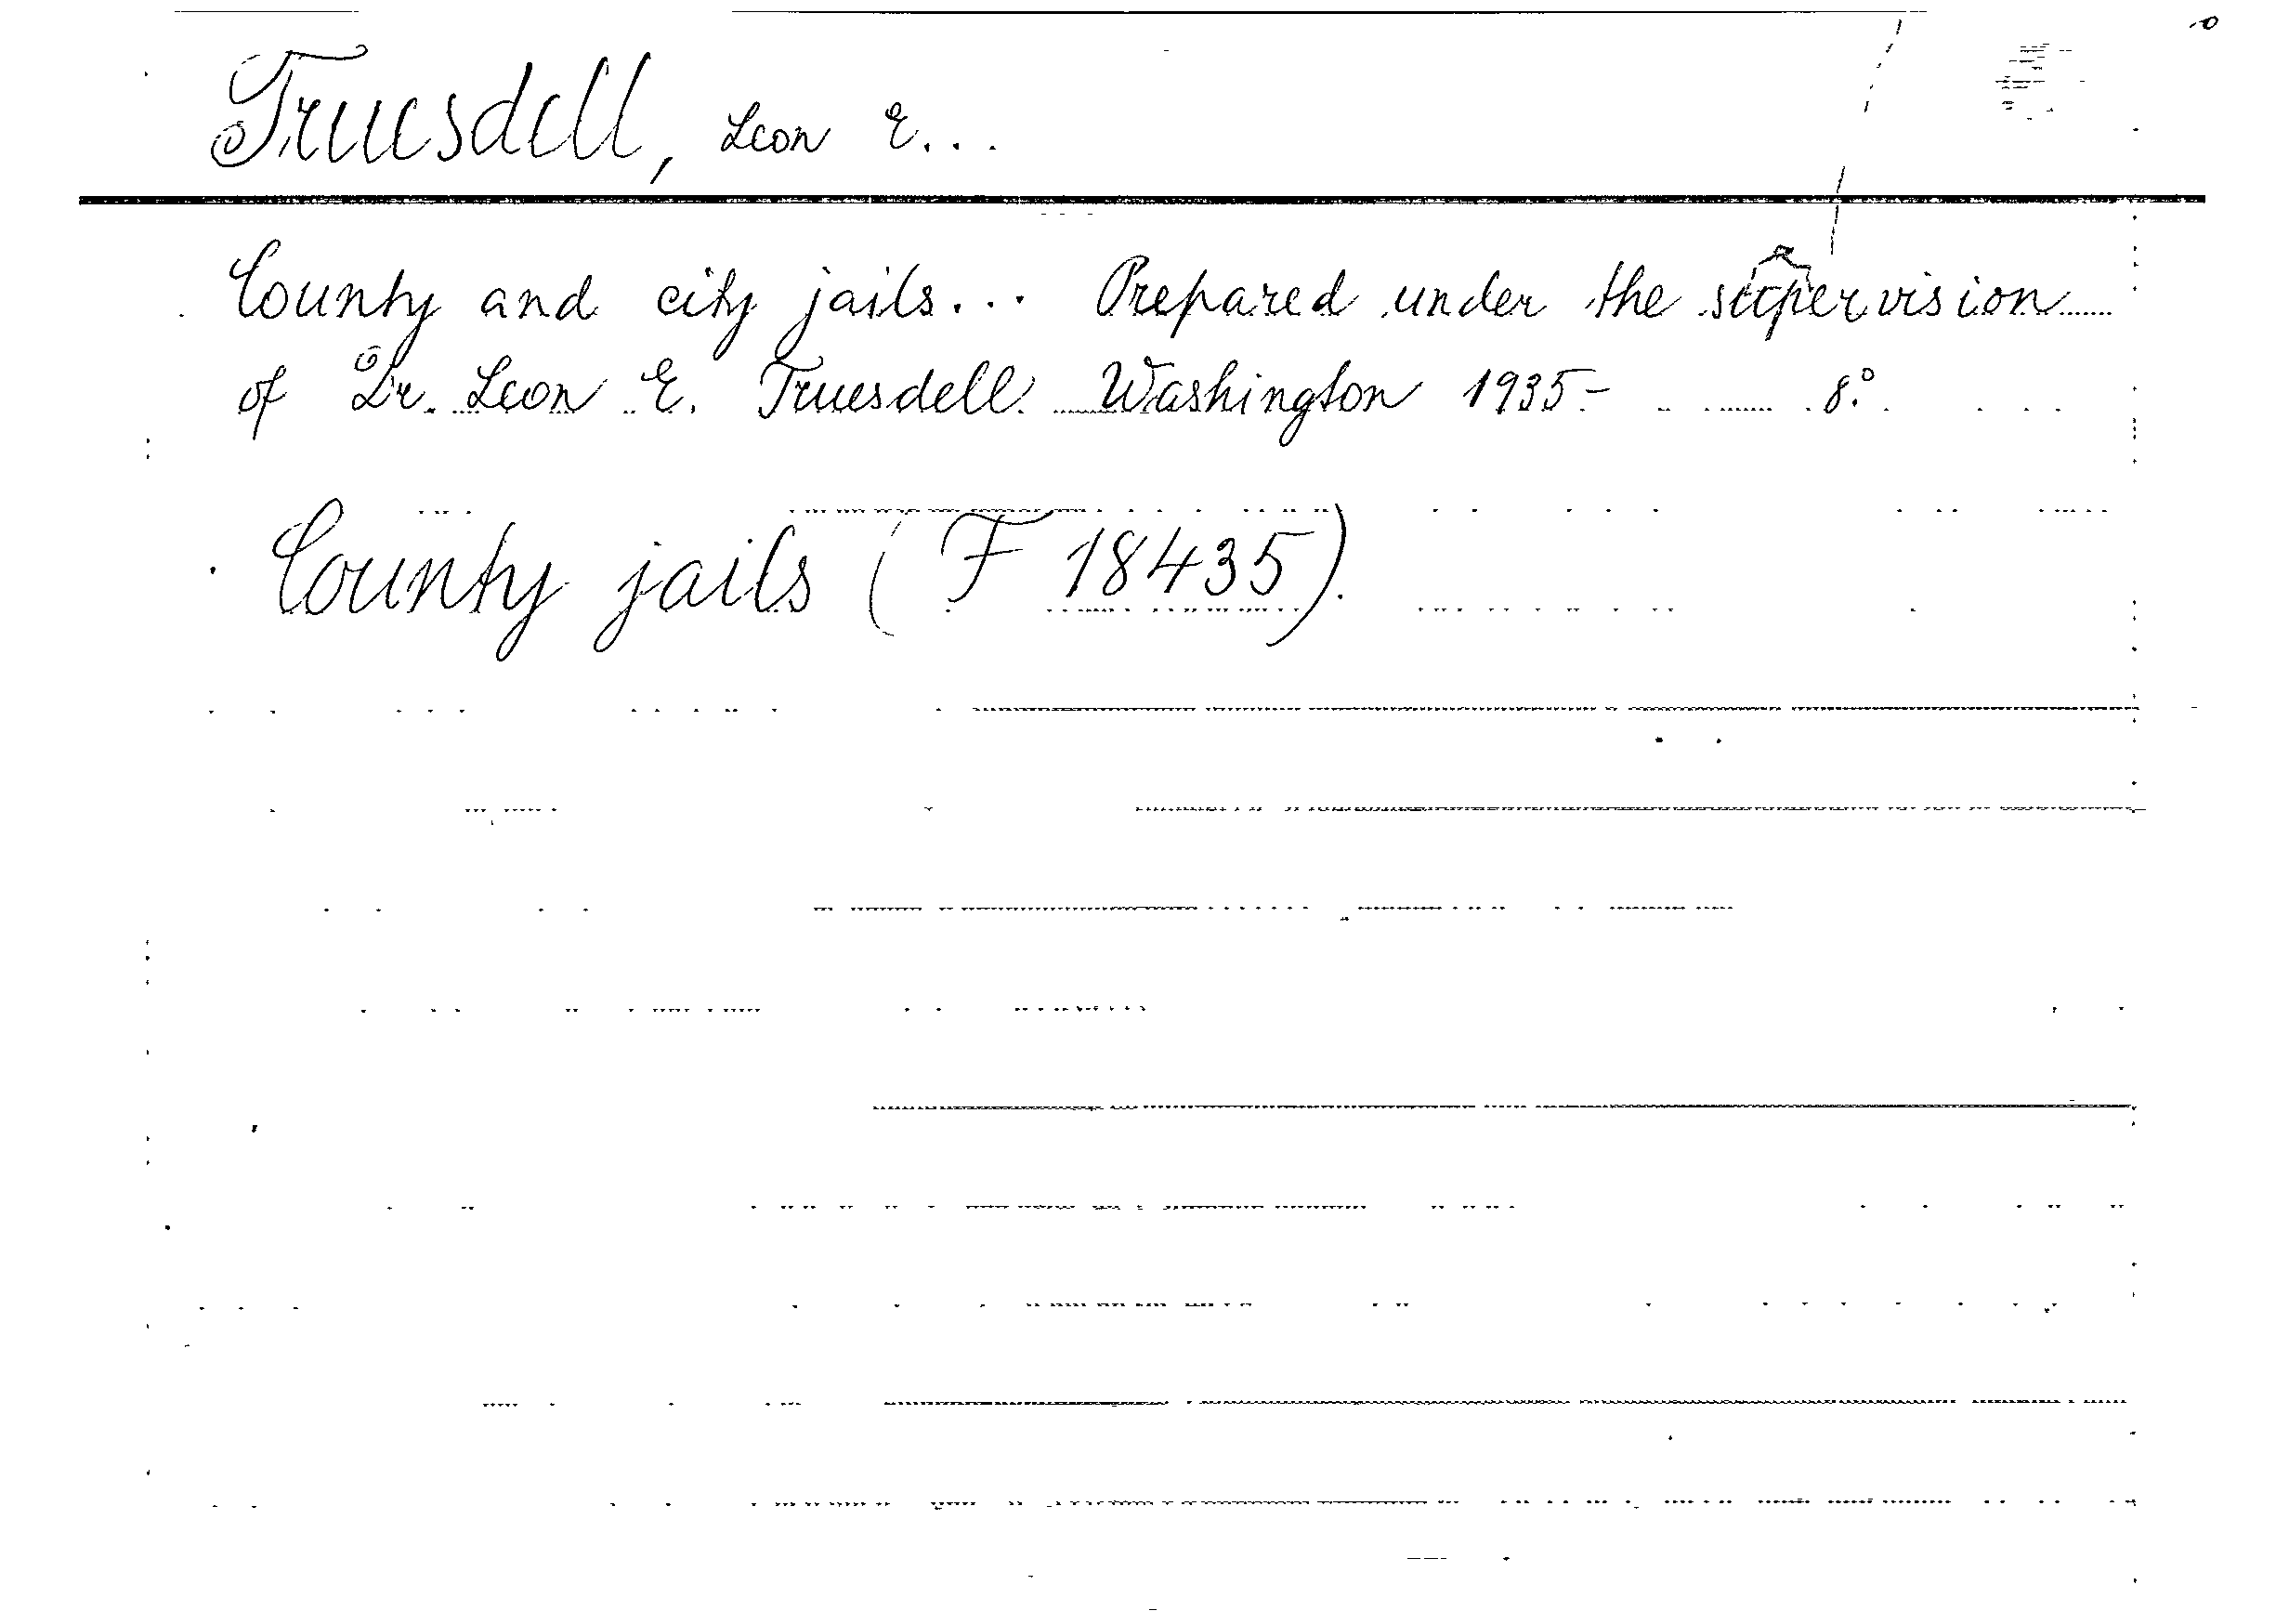 Truesdell, Leon E...
County and city jails... Prepared under the supervision
of Dr. Leon E. Truesdell. Washington 1935.- 8.º
County jails (F 18435).